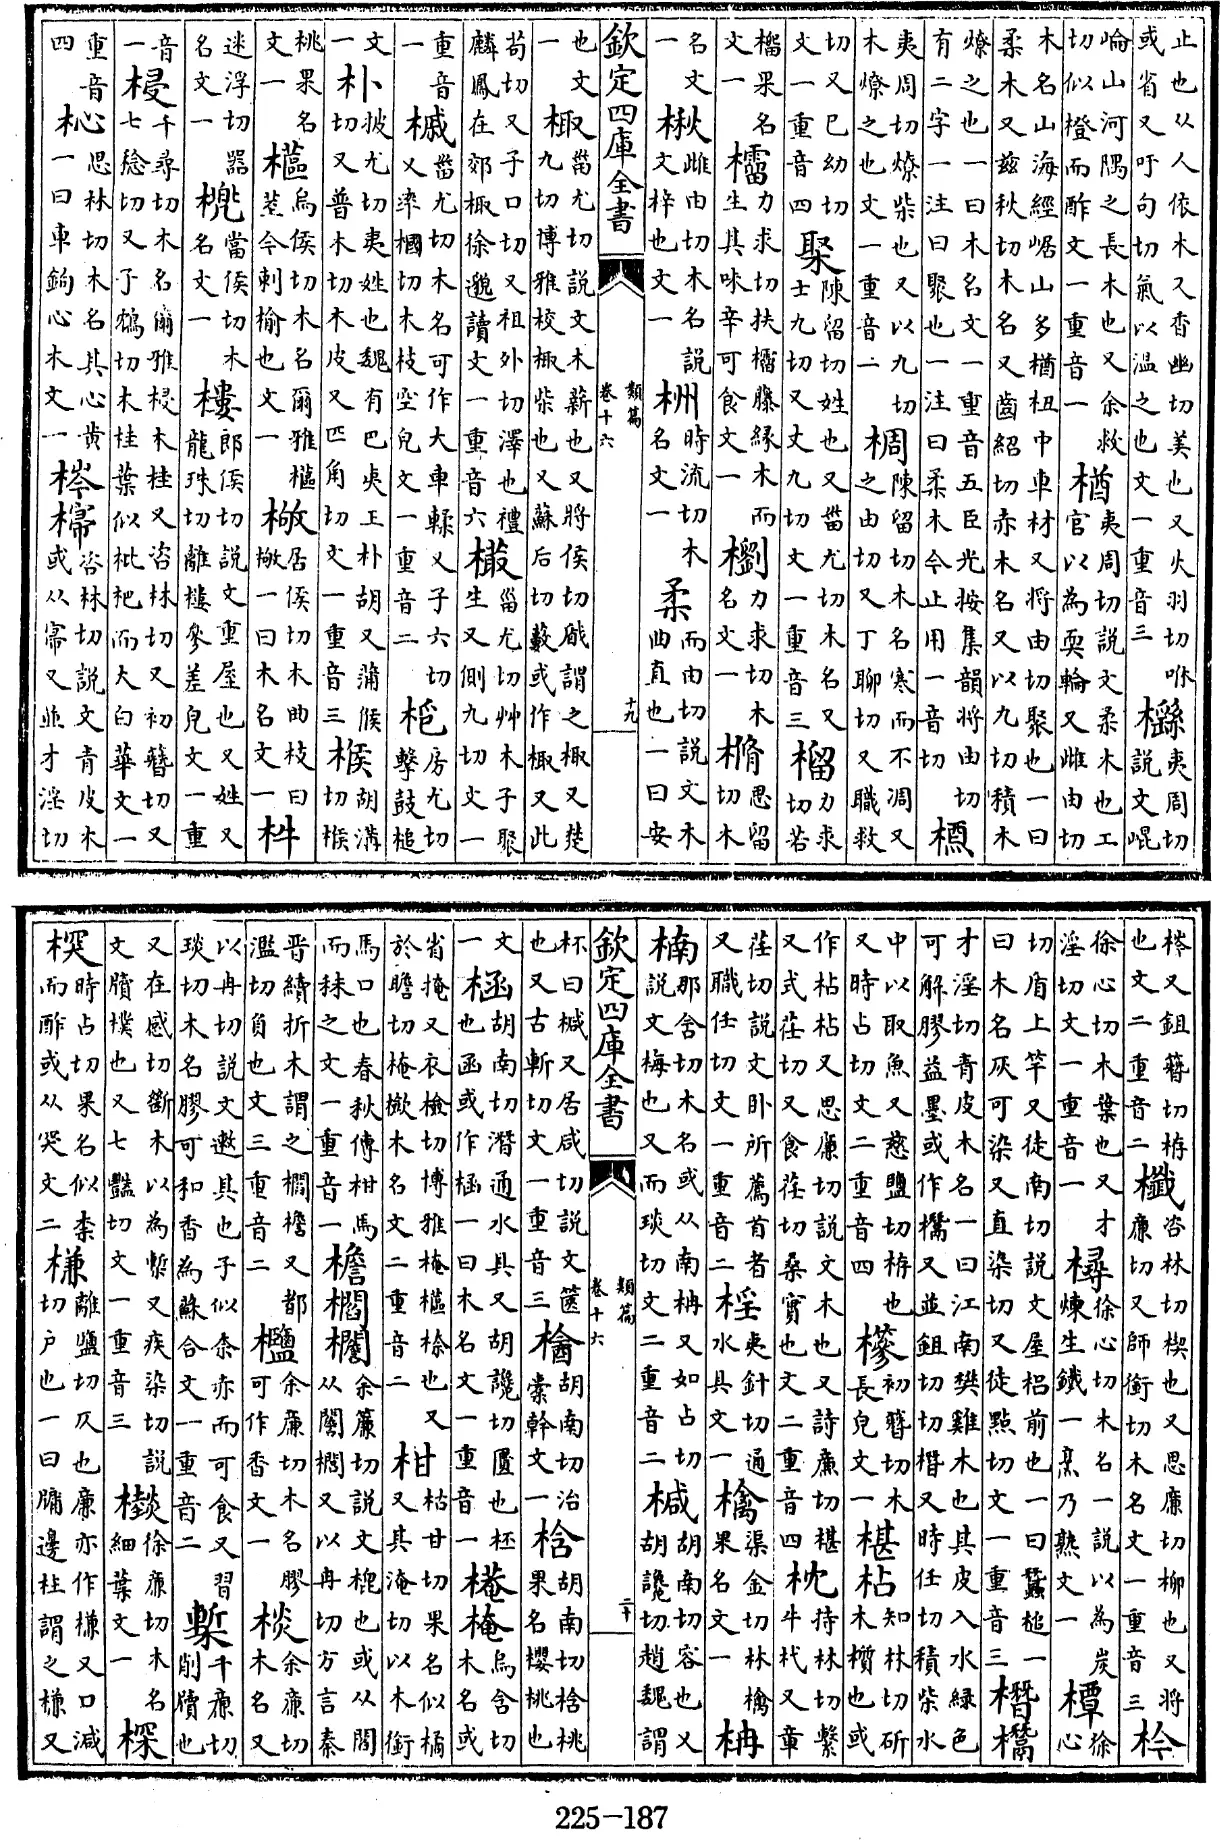 止也从人依木又香幽切美也又火羽切咻或省又吁句切氣以温之也文一重音三櫾夷周切說文崐
崘山河隅之長木也又余救切似橙而酢文一重音一楢夷周切說文柔木也工官以為耎輪又雌由切
木名山海經崌山多楢杻中車材又將由切聚也一曰柔木又兹秋切木名又齒紹切赤木名又以九切積木
燎之也一曰木名文一重音五臣光按集韻將由切有二字一注曰聚也一注曰柔木今止用一音切槱
夷周切燎柴也又以九切木燎之也文一重音二椆陳留切木名寒而不凋又之由切又丁聊切又職救
切又已幼切文一重音四棸陳留切姓也又甾尤切木名又士九切又丈九切文一重音三榴力求切若
榴果名文一力求切扶橊藤緣木而生其味辛可食文一力求切木名文一樇思留切木
名文一楸雌由切木名說文梓也文一栦時流切木名文一柔而由切說文木曲直也一曰安
欽定四庫全書 類篇 卷十六 十九
也文一棷甾尤切說文木薪也又將侯切戚謂之棷又楚九切博雅棷柴也又蘇后切藪或作棷又此
苟切又子口切又祖外切澤也禮麟鳳在郊棷徐邈讀文一重音六甾尤切艸木子聚生又側九切文一
重音一槭甾尤切木名可作大車輮又子六切又率摑切木枝空皃文一重音二枹房尤切擊鼓槌
文一朴披尤切夷姓也魏有巴夷王朴胡又蒲候切又普木切木皮又匹角切文一重音三胡溝切
桃果名文一櫙烏侯切木名爾雅櫙荎今刺榆也文一居侯切木曲枝曰一曰木名文一
迷浮切器名文一當侯切木名文一樓郎侯切說文重屋也又姓又龍珠切離樓參差皃文一重
音一梫千尋切木名爾雅梫木桂又咨林切又初簪切又七稔切又子鴆切木桂葉似枇杷而大白華文一
重音四杺思林切木名其心黄一曰車鉤心木文一梣咨林切說文青皮木或从又並才淫切
梣又鉏簪切栫也文二重音二櫼咨林切楔也又思廉切柳也又將廉切又師銜切木名文一重音三枔
徐心切木葉也又才淫切文一重音一樳徐心切木名一說以為炭煉生鐵一烹乃熟文一橝徐心
切盾上竿又徒南切說文屋梠前也一曰蠶槌一曰木名灰可染又直染切又徒點切文一重音三
才淫切青皮木名一曰江南樊雞木也其皮入水緑色可解膠益墨或作又並鉏切切又時任切積柴水
中以取魚又慈鹽切栫也又時占切文二重音四槮初簪切木長皃文一椹枮知林切斫木櫍也或
作枮枮又思廉切說文木也又詩廉切椹又式荏切又食荏切桑實也文二重音四枕持林切繫牛杙又章
荏切說文卧所薦首者又職任切文一重音二夷針切通水具文一檎渠金切林檎果名文一柟
楠那含切木名或从南柟又如占切說文梅也又而琰切文二重音二椷胡南切容也又胡讒切趙魏謂
欽定四庫全書 類篇 卷十六 二十
杯曰椷又居咸切說文篋也又古斬切文一重音三胡南切冶槖榦文一梒胡南切梒桃果名櫻桃也
文一桮胡南切潛通水具又胡讒切匱也桮也函或作一曰木名文一重音一烏含切木名或
省掩又衣檢切博雅樞梒也又於瞻切樕木名文二重音二柑枯甘切果名似橘又其淹切以木銜
馬口也春秋傳柑馬而秣之文一重音一檐櫩余簾切說文㮰也或从閻从闔櫩又以冉切方言秦
晉續折木謂之櫩檐又都濫切負也文三重音二余廉切木名膠可作香文一棪余廉切木名又
以冉切說文遬其也子似柰赤而可食又習琰切木名膠可和香為蘇合文一重音二槧千廉切削牘也
又在感切斷木以為槧又疾染切說文牘樸也又七豔切文一重音三徐廉切木名細葉文一
時占切果名似柰而酢或从文二槏離鹽切仄也廉亦作槏又口減切户也一曰牖邊柱謂之槏又
225-187